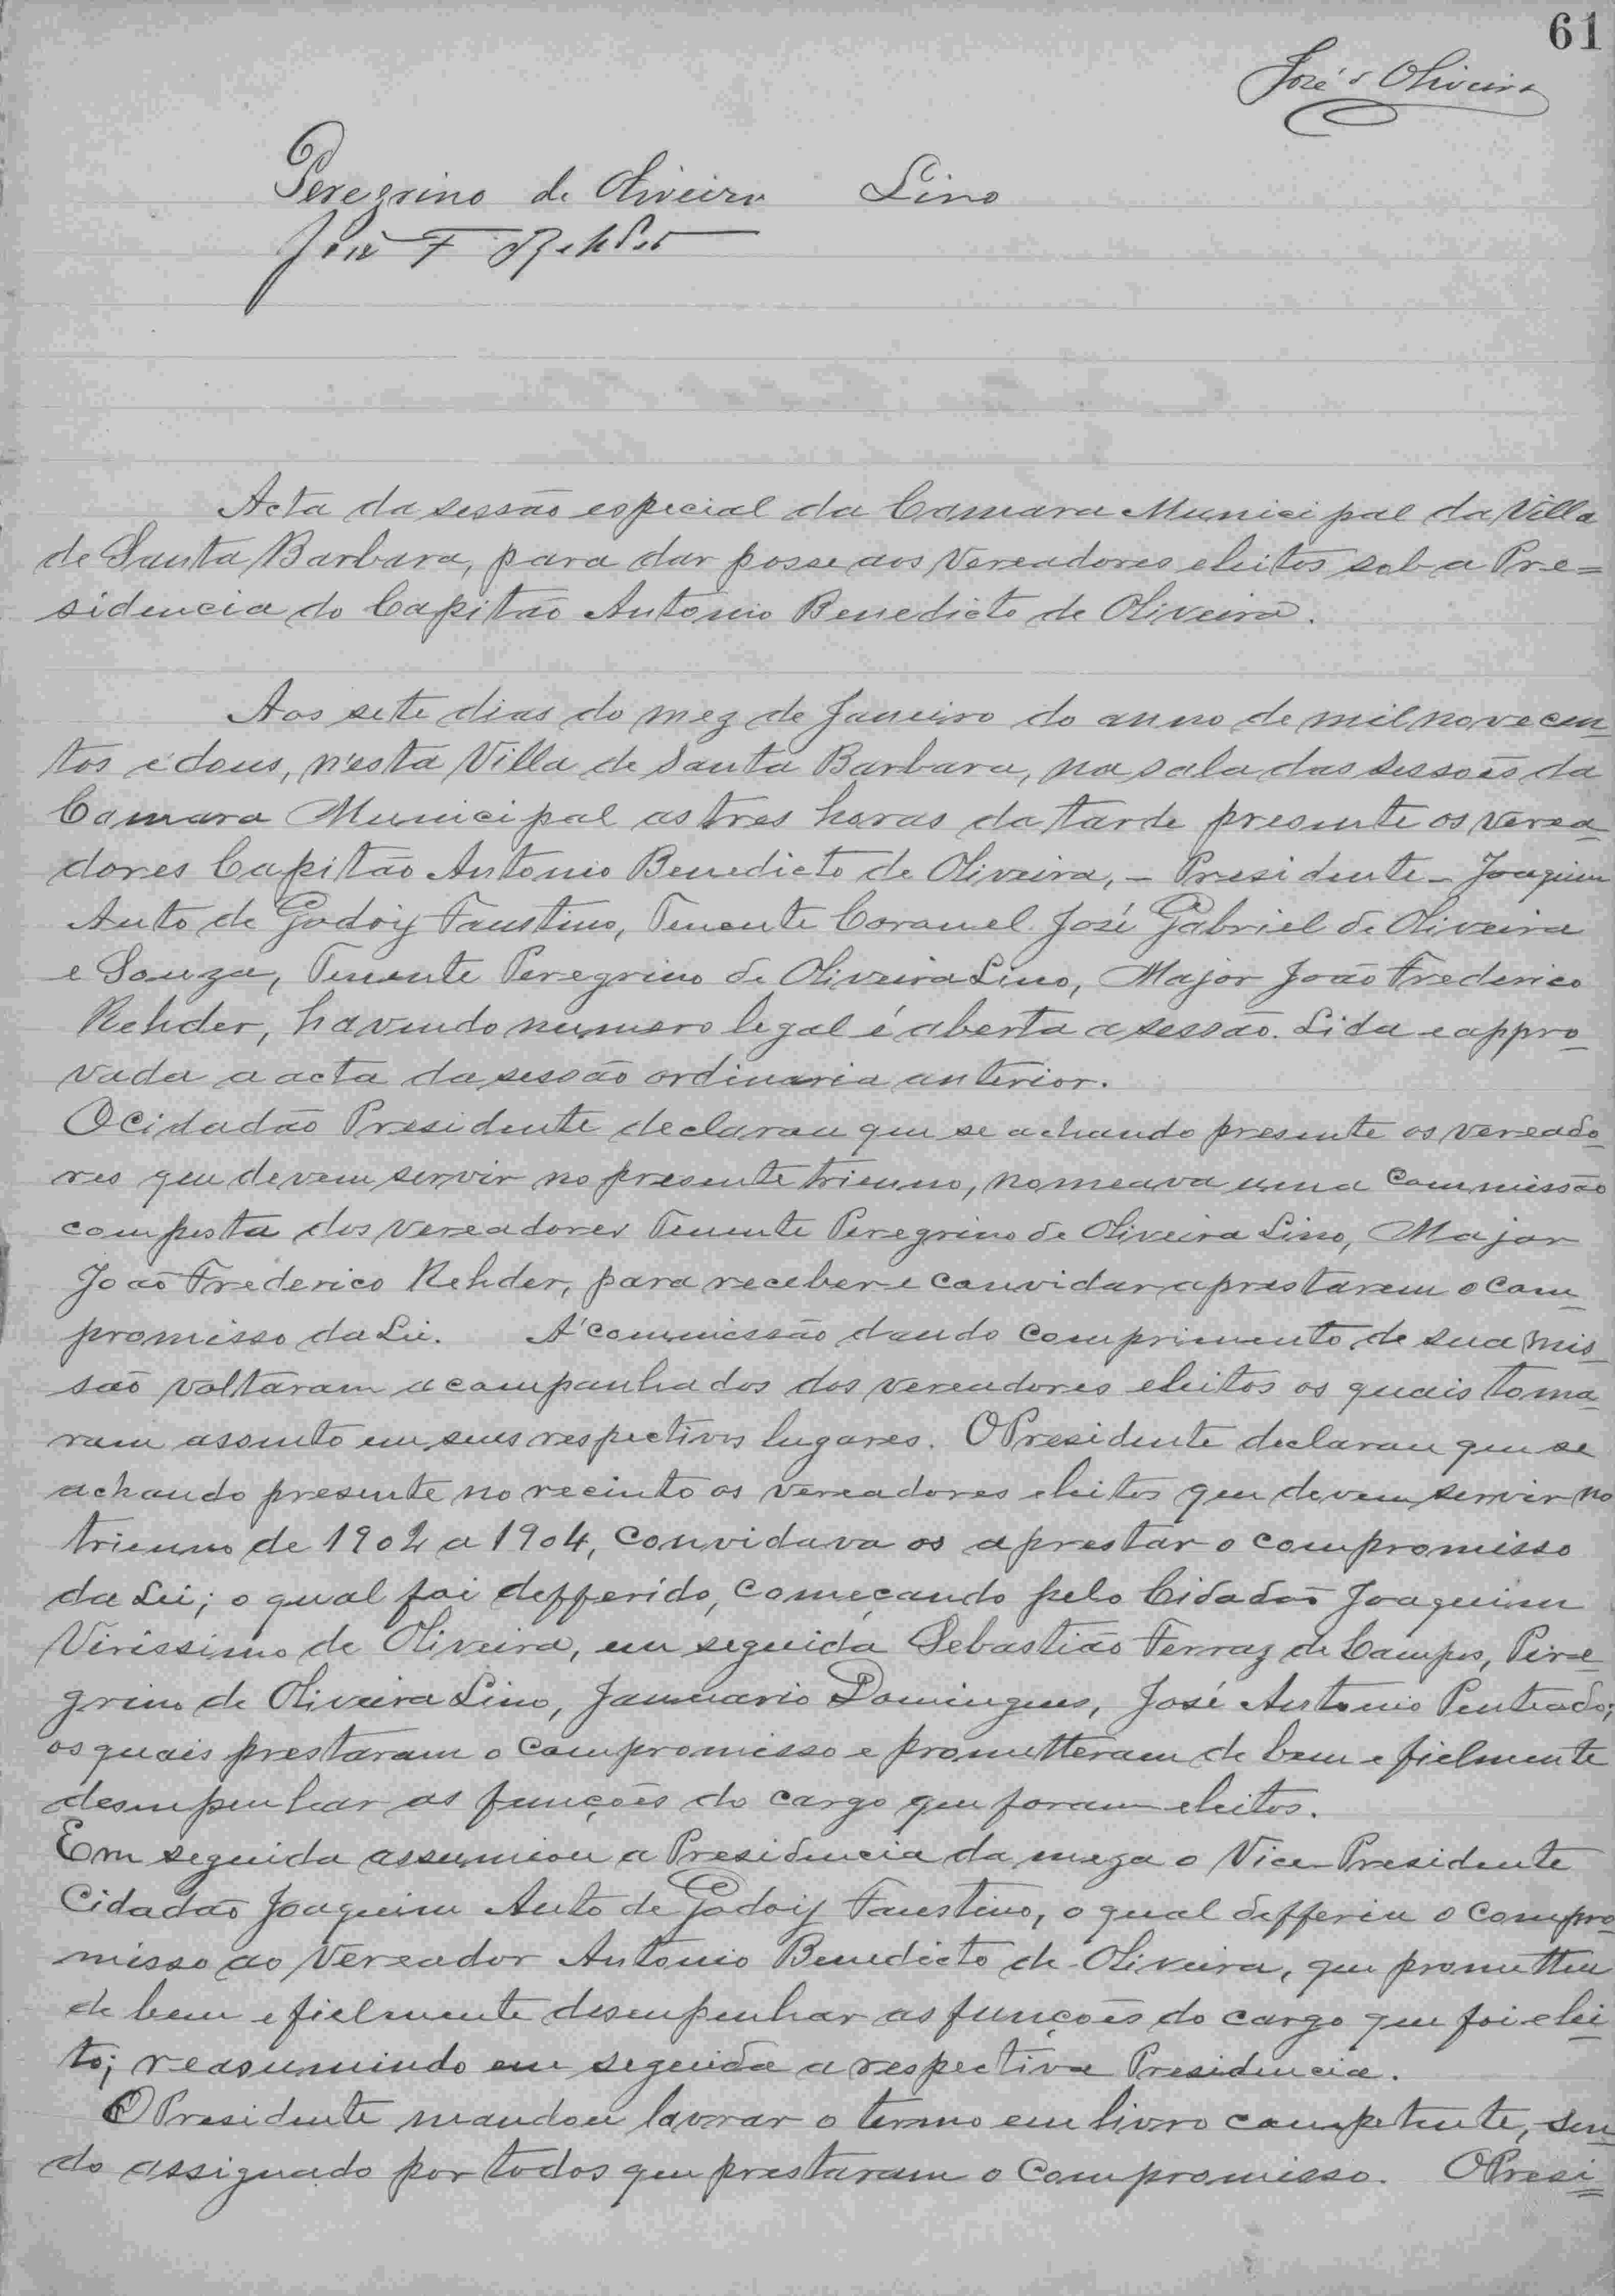 61
José d Oliveira
Peregrino de Oliveira Lino
João F Rehder
Acta da sessão especial da Camara Municipal da Villa
de Santa Barbara, para dar posse aos Vereadores eleitos sob a Pre=
sidencia do Capitão Antonio Benedicto de Oliveira.
Aos sete dias do mez de Janeiro do anno de mil novecen-
tos e dous, n'esta Villa de Santa Barbara, na sala das sessoēs da
Camara Municipal as tres horas da tarde presente os verea-
dores Capitão Antonio Benedicto de Oliveira, - Presidente - Joaquim
Auto de Godoij Faustino, Tenente Coronel José Gabriel de Oliveira
e Souza, Tenente Peregrino de Oliveira Lino, Major João Frederico
Rehder, havendo numero legal é aberta a sessão. Lida e appro-
vada a acta da sessão ordinaria anterior.
O Cidadão Presidente declarou que se achando presente os vereado-
res que devem servir no presente trienno, nomeava uma Commissão
composta dos vereadores Tenente Peregrino de Oliveira Lino, Major
João Frederico Rehder, para receber e convidar a prestarem o com-
promisso da Lei. A' commissão dando comprimento de sua mis-
são voltaram acompanhados dos vereadores eleitos os quais toma-
ram assento em seus respectivos lugares. O Presidente declarou que se
achando presente no recinto os vereadores eleitos que devem servir no
trienno de 1902 a 1904, convidava os a prestar o compromisso
da Lei; o qual foi defferido, começando pelo Cidadão Joaquim
Virissimo de Oliveira, em seguida Sebastião Ferraz de Campos, Pere-
grino de Oliveira Lino, Januario Domingues, José Antonio Penteado;
os quais prestaram o compromisso e prometteram de bem e fielmente
desempenhar as funcções do cargo que foram eleitos.
Em seguida assumiou a Presidencia da meza o Vice-Presidente
Cidadão Joaquim Auto de Godoij Faustino, o qual defferiu o compro-
misso ao Vereador Antonio Benedicto de Oliveira, que prometteu
de bem e fielmente desempenhar as funcções do cargo que foi elei-
to; reasumindo em seguida a respectiva Presidencia.
O Presidente mandou lavrar o termo em livro competente, sen-
do assignado por todos que prestaram o compromisso. O Presi=